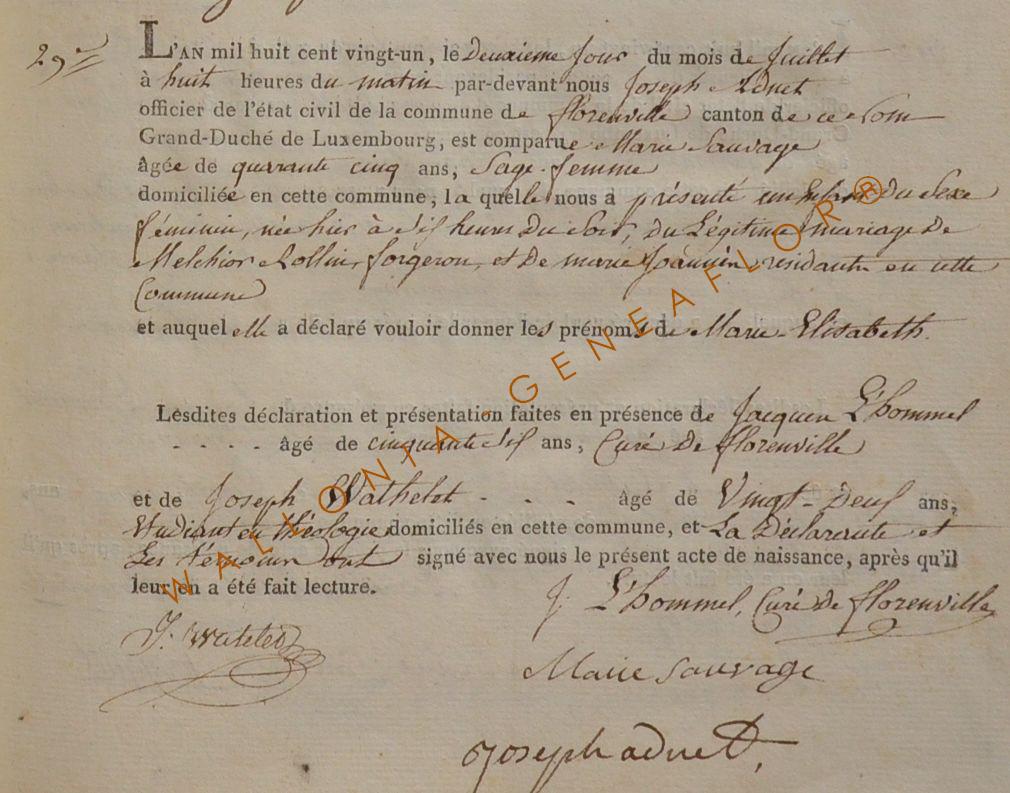 29e
L'AN mil huit cent vingt-un, le Deuxieme Jour du mois de Juillet
à huit heures du matin par-devant nous Joseph Adnet
officier de l'état civil de la commune de florenville canton de ce Nom
Grand-Duché de Luxembourg, est comparue Marie Sauvage
âgée de quarante cinq ans, Sage-femme
domiciliée en cette commune, la quelle nous a présenté un Enfant du Sexe
féminin, née hier à Six heures du Soir, du Légitime mariage de
Melchior Rollin, forgeron, et de marie Joannin residants en cette
Commune
et auquel elle a déclaré vouloir donner les prénoms de Marie-Elisabeth.
Lesdites déclaration et présentation faites en présence de Jacques L'hommel
- - - - âgé de cinquante six ans, Curé de florenville
et de Joseph Wathelet - - - âgé de Vingt-Deux ans,
Etudiant en théologie domiciliés en cette commune, et La Déclarante et
Les témoins ont signé avec nous le présent acte de naissance, après qu'il
leur en a été fait lecture.
J. L'hommel, Curé De florenville
J. Watelet
Marie Sauvage
Joseph adnet,
WALLONIA-GENEAFLOR®